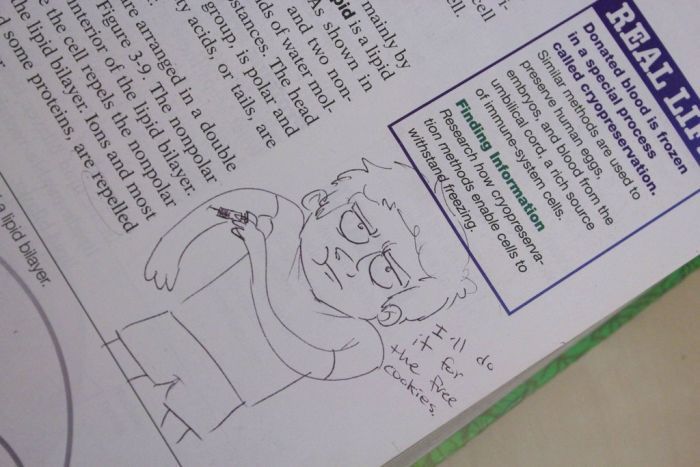 mainly by
pid is a lipid
As shown in
and two non-
ds of water mol-
stances. The head
group, is polar and
ty acids, or tails, are
are arranged in a double
Figure 3-9. The nonpolar
interior of the lipid bilayer.
e the cell repels the nonpolar
the lipid bilayer. Ions and most
d some proteins, are repelled
a lipid bilayer.
cell
ell.
REAL LI
Donated blood is frozen
in a special process
called cryopreservation.
Similar methods are used to
preserve human eggs,
embryos, and blood from the
umbilical cord, a rich source
of immune-system cells.
Finding Information
Research how cryopreserva-
tion methods enable cells to
withstand freezing.
I'll do
it for
the free
cookies.